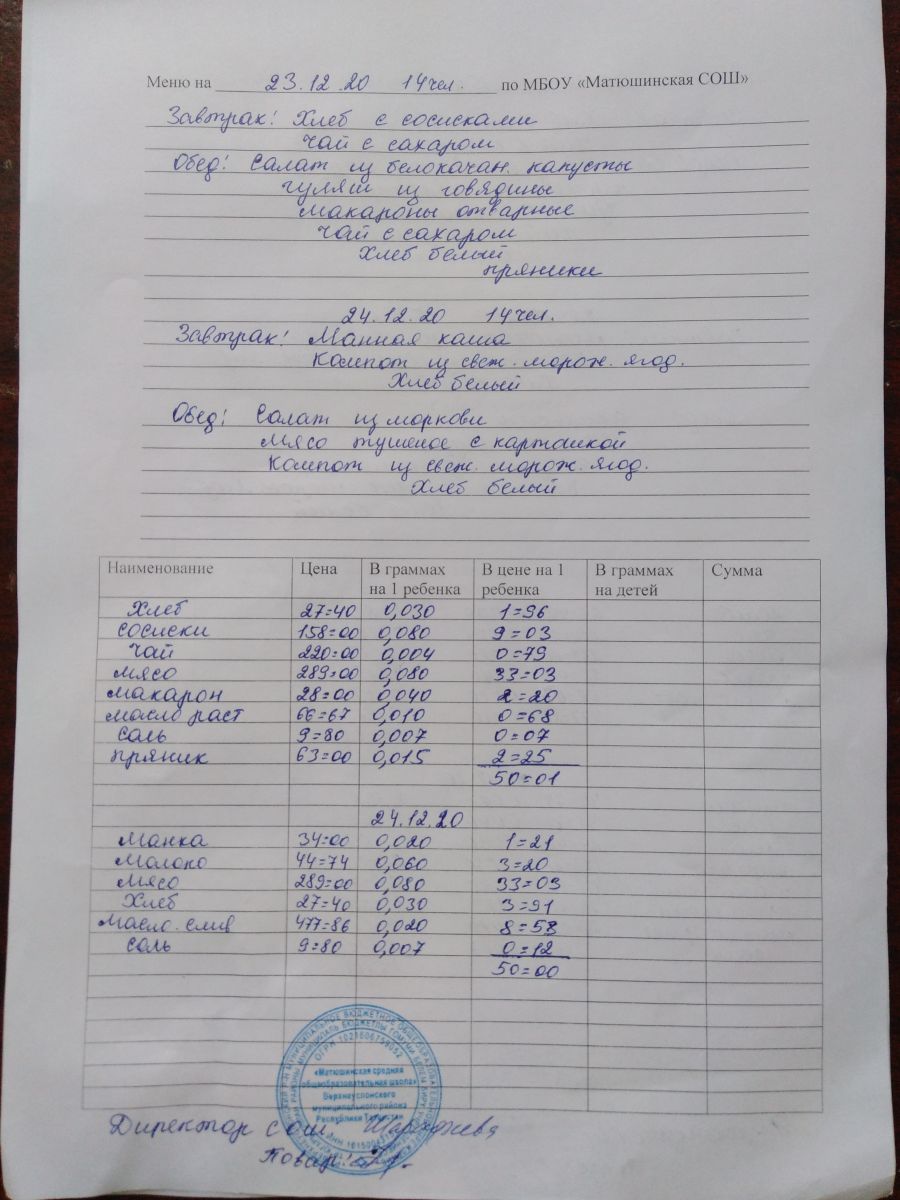 Меню на 23.12.20 14 чел. по МБОУ «Матюшинская СОШ»
Завтрак: Хлеб с сосисками
Чай с сахаром
Обед: Салат из белокачан. капусты
гуляш из говядины
макароны отварные
Чай с сахаром
Хлеб белый
пряники
24.12.20 14 чел.
Завтрак: Манная каша
Компот из свеж. морож. ягод.
Хлеб белый
Обед: Салат из моркови
Мясо тушеное с картошкой
Компот из свеж. морож. ягод.
Хлеб белый
Наименование Цена В граммах на 1 ребенка В цене на 1 ребенка В граммах на детей Сумма
Хлеб 27=40 0,030 1=96
сосиски 158=00 0,080 9=03
чай 220=00 0,004 0=79
мясо 289=00 0,080 33=03
макарон 28=00 0,040 2=20
масло раст 66=67 0,010 0=68
соль 9=80 0,007 0=07
пряник 63=00 0,015 2=25
50=01
24.12.20
Манка 34=00 0,020 1=21
Молоко 44=74 0,060 3=20
Мясо 289=00 0,080 33=03
Хлеб 27=40 0,030 3=91
Масло. слив 477=86 0,020 8=53
соль 9=80 0,007 0=12
50=00
ОГРН 1021606758052
«Матюшинская средняя
общеобразовательная школа»
Верхнеуслонского
муниципального района
Республики Татарстан
Директор сош.
Повар: